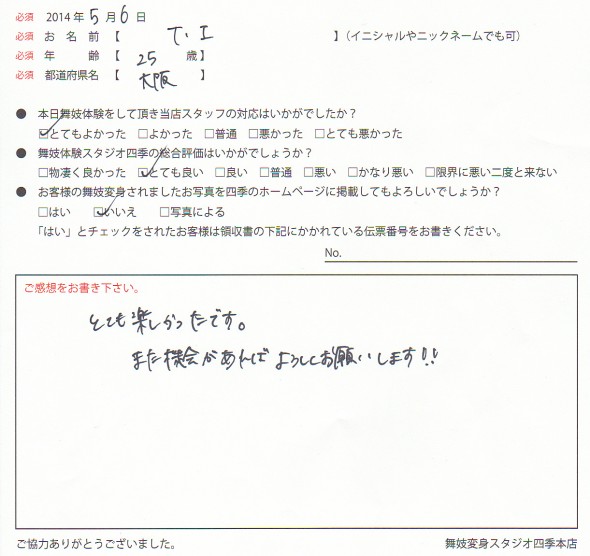 必須 2014年 5月 6日
必須 お 名 前 【 T. I 】(イニシャルやニックネームでも可)
必須 年 齢 【 25 歳】
必須 都道府県名 【 大阪 】
● 本日舞妓体験をして頂き当店スタッフの対応はいかがでしたか?
☑とてもよかった □よかった □普通 □悪かった □とても悪かった
● 舞妓体験スタジオ四季の総合評価はいかがでしょうか?
□物凄く良かった ☑とても良い □良い □普通 □悪い □かなり悪い □限界に悪い二度と来ない
● お客様の舞妓変身されましたお写真を四季のホームページに掲載してもよろしいでしょうか?
□はい ☑いいえ □写真による
「はい」とチェックをされたお客様は領収書の下記にかかれている伝票番号をお書きください。
No.
ご感想をお書き下さい。
とても楽しかったです。
また機会があればよろしくお願いします!!
ご協力ありがとうございました。 舞妓変身スタジオ四季本店